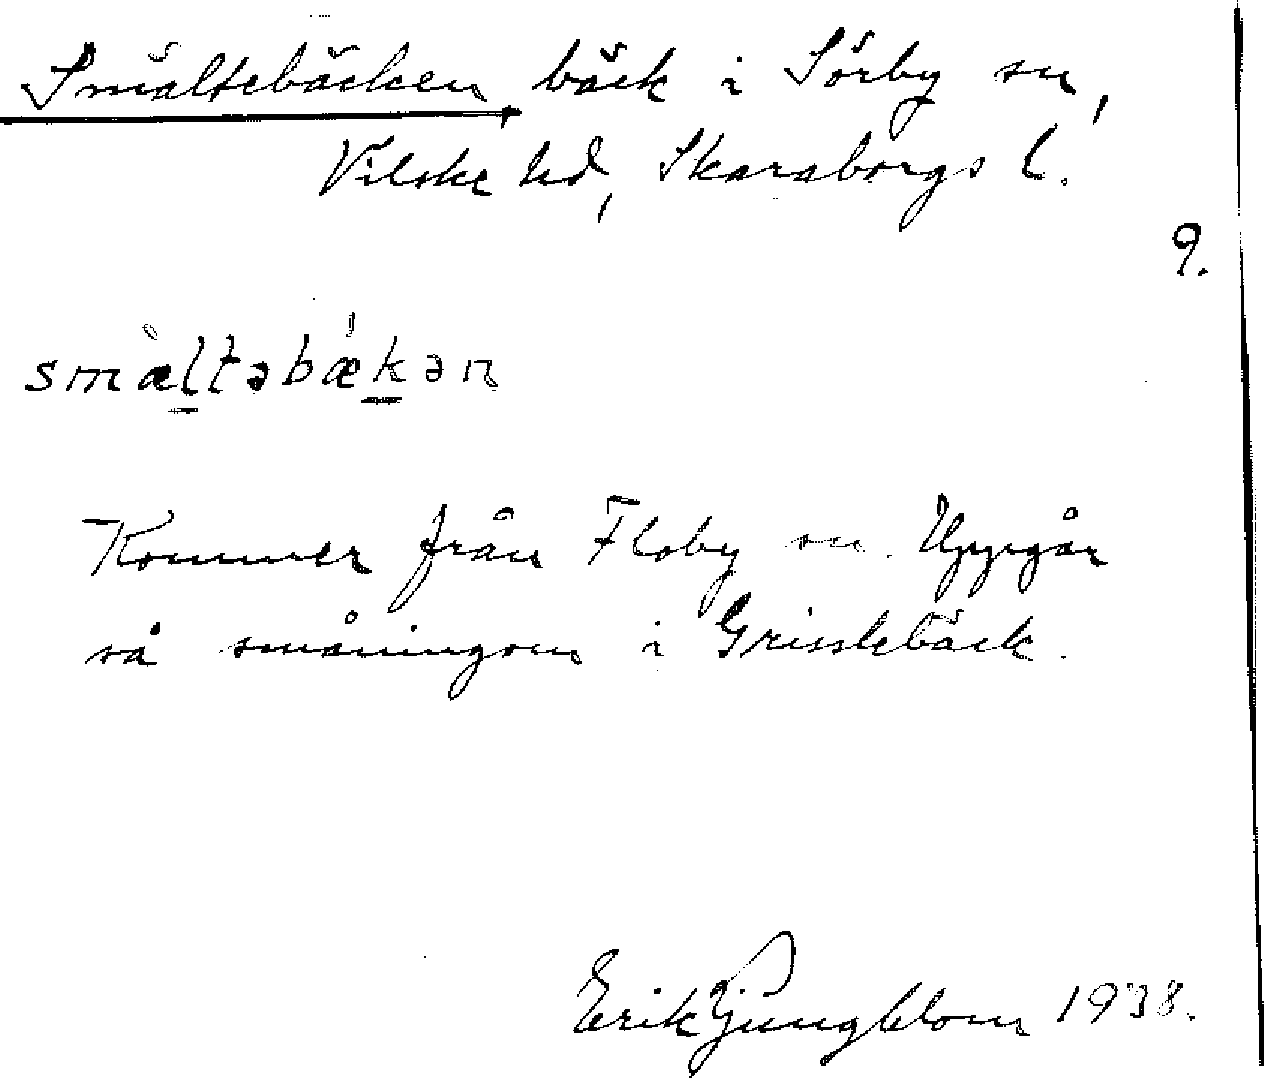 Smältebäcken bäck i Sörby sn,
Vilske hd, Skaraborgs l.
9.
smæ̀ltəbæ̀kən
Kommer från Floby sn. Uppgår
så småningom i Grisslebäck.
Erik Ljungblom 1938.